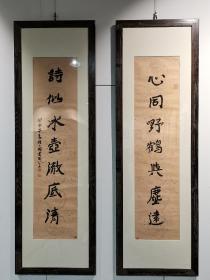 心同野鶴與塵遠
詩似冰壺澈底清